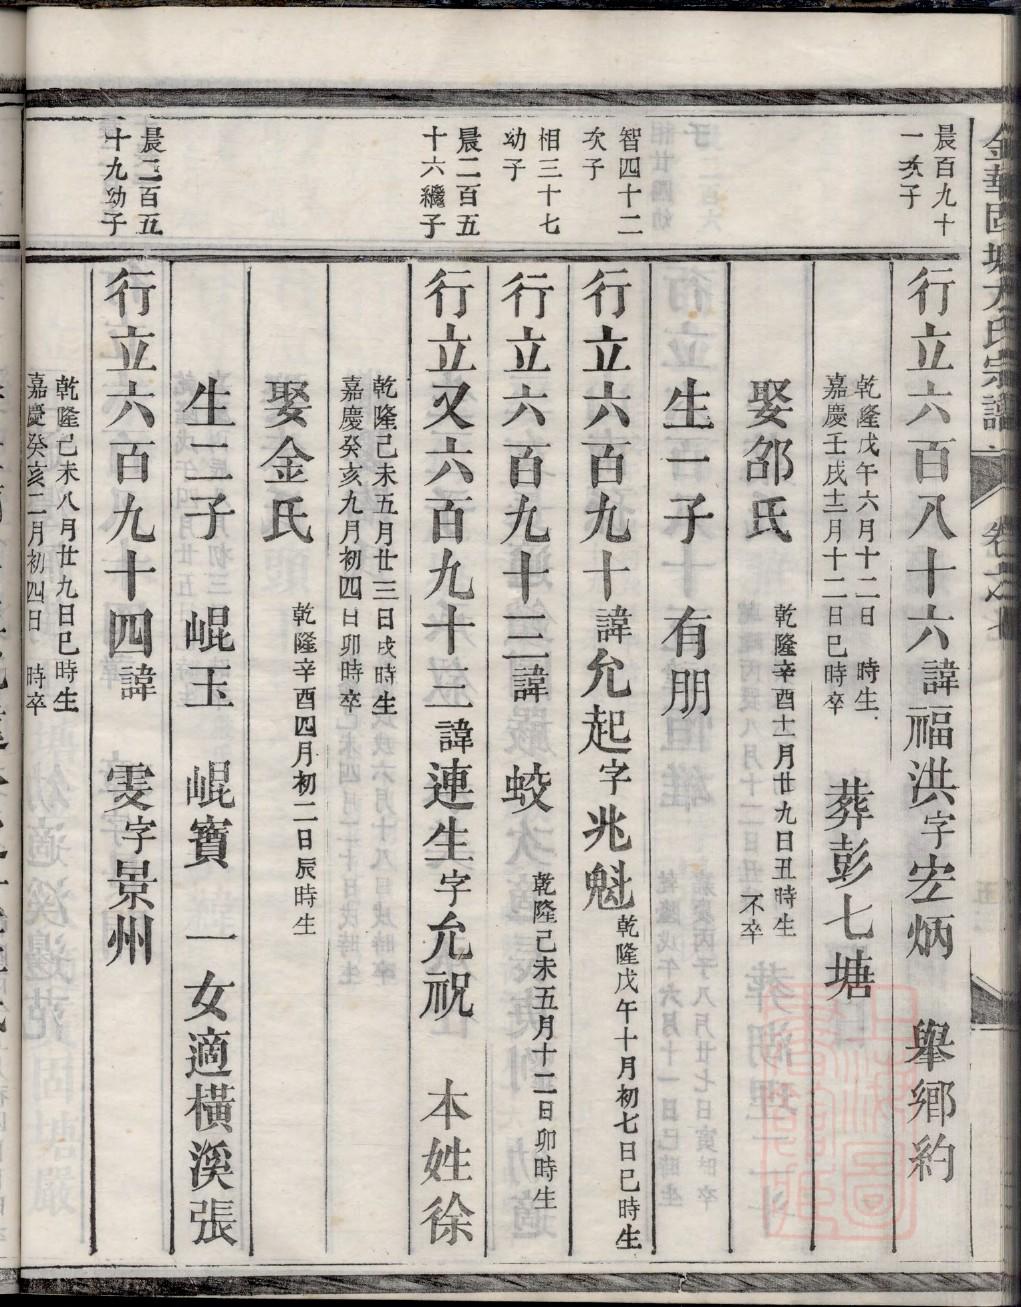 金華固塘方氏宗譜
卷之
晨百九十
一次子
行立六百八十六諱福洪字宏炳 舉鄉約
乾隆戊午六月十二日 時生
嘉慶壬戌十二月十二日巳時卒
葬彭七塘
娶邵氏
乾隆辛酉十一月廿九日丑時生
不卒
生一子 有朋
智四十二
次子
行立六百九十諱允起字兆魁
乾隆戊午十月初七日巳時生
相三十七
幼子
行立六百九十三諱 蛟
乾隆己未五月十二日卯時生
晨二百五
十六繼子
行立又六百九十三諱連生字允祝 本姓徐
乾隆己未五月廿三日戌時生
嘉慶癸亥九月初四日卯時卒
娶金氏
乾隆辛酉四月初二日辰時生
生二子 崐玉 崐寶 一女適橫溪張
晨二百五
十九幼子
行立六百九十四諱 雯字景州
乾隆己未八月廿九日巳時生
嘉慶癸亥二月初四日 時卒